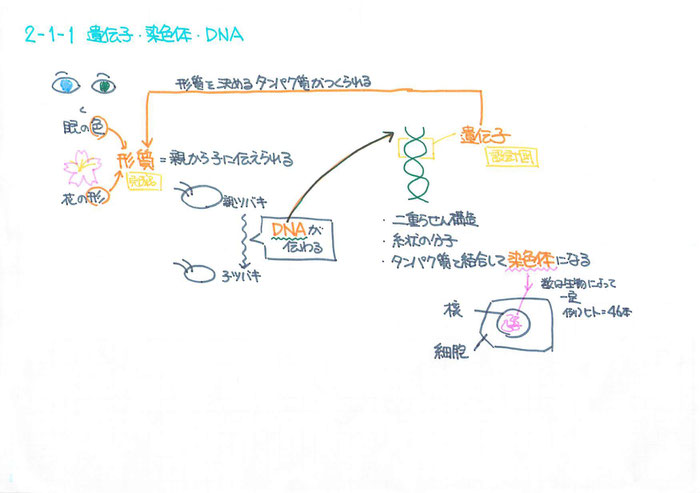 2-1-1 遺伝子・染色体・DNA
形質を決めるタンパク質がつくられる
眼の色
形質=親から子に伝えられる
花の形
遺伝子
設計図
親ツバキ
DNAが
伝わる
子ツバキ
・二重らせん構造
・糸状の分子
・タンパク質と結合して染色体になる
数は生物によって
一定
例)ヒト=46本
核
細胞